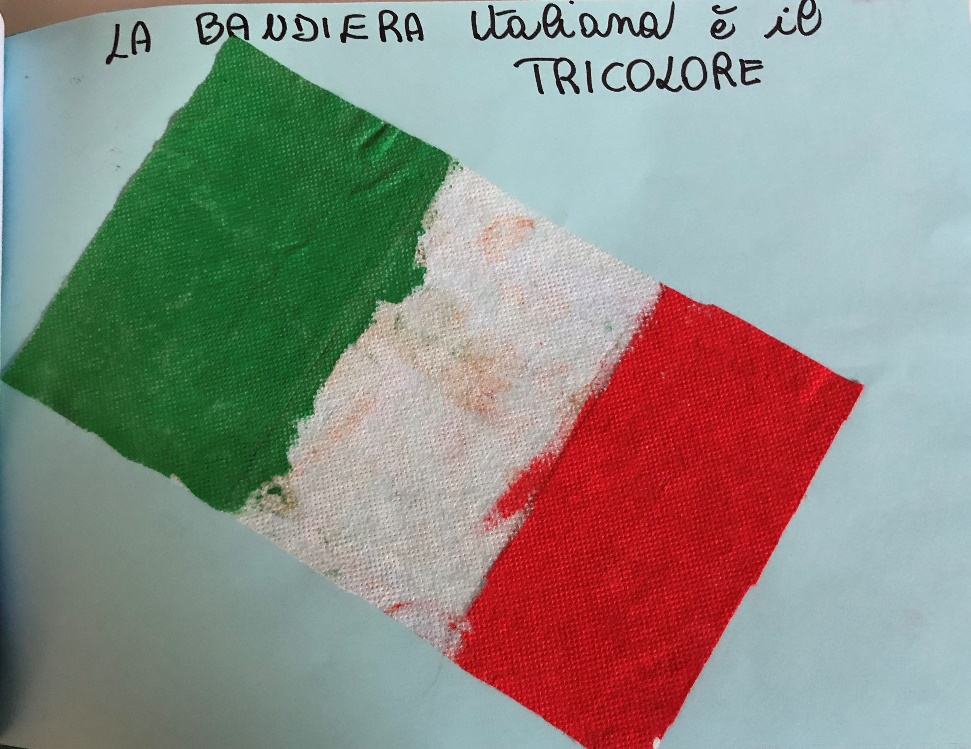 LA BANDIERA italiana è il
TRICOLORE